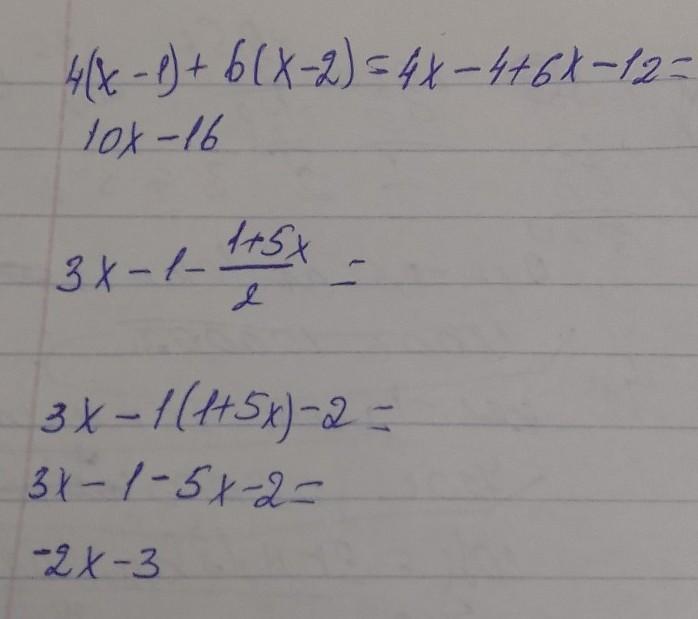 4(x-1)+6(x-2)=4x-4+6x-12=
10x-16
3x-1-\frac{1+5x}{2}=
3x-1(1+5x)-2=
3x-1-5x-2=
-2x-3